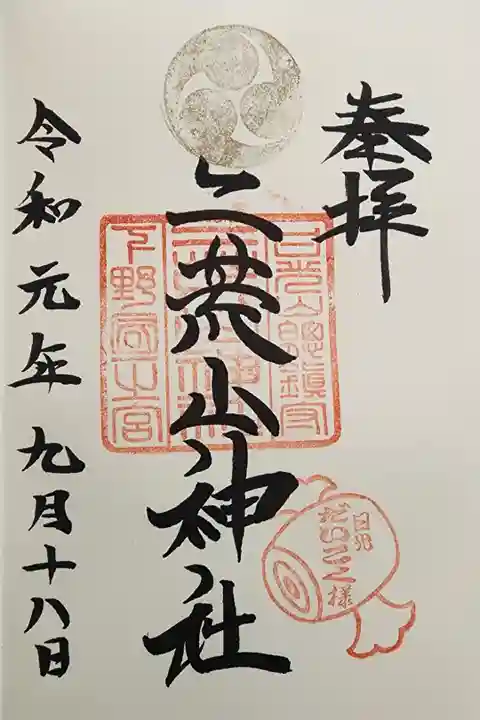 奉拝
日光山總鎮守
二荒山神社
下野国一之宮
日光
だいこく様
令和元年九月十八日